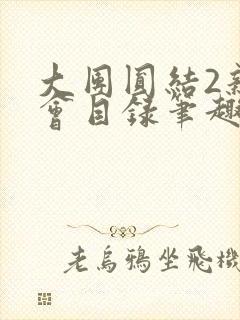 大团圆结2
会目录笔趣
老乌鸦坐飞機